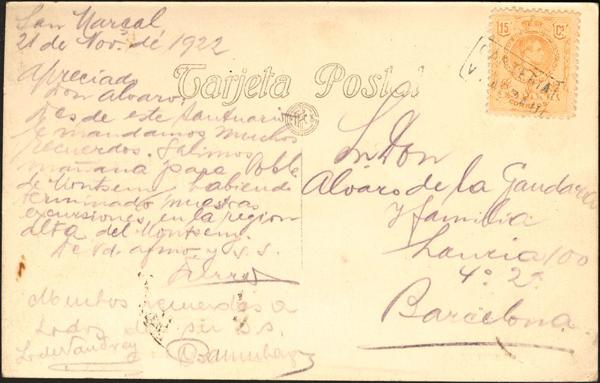 San Marcal
21 de Nov. de 1922
Apreciado
Don Alvaro,
des de este Santuario
le mandamos muchos
recuerdos. Salimos
mañana para Pobla
de Montseny, habiendo
terminado nuestras
excursiones en la region
alta del Montseny.
De Vd. afmo. y s.s.
Muchos recuerdos a
todos de su s.s.
Tarjeta Postal
15 Cs
CARTERIA
Sr. Don
Alvaro de la Gandara
y familia
Lauria 100
4º 2ª
Barcelona